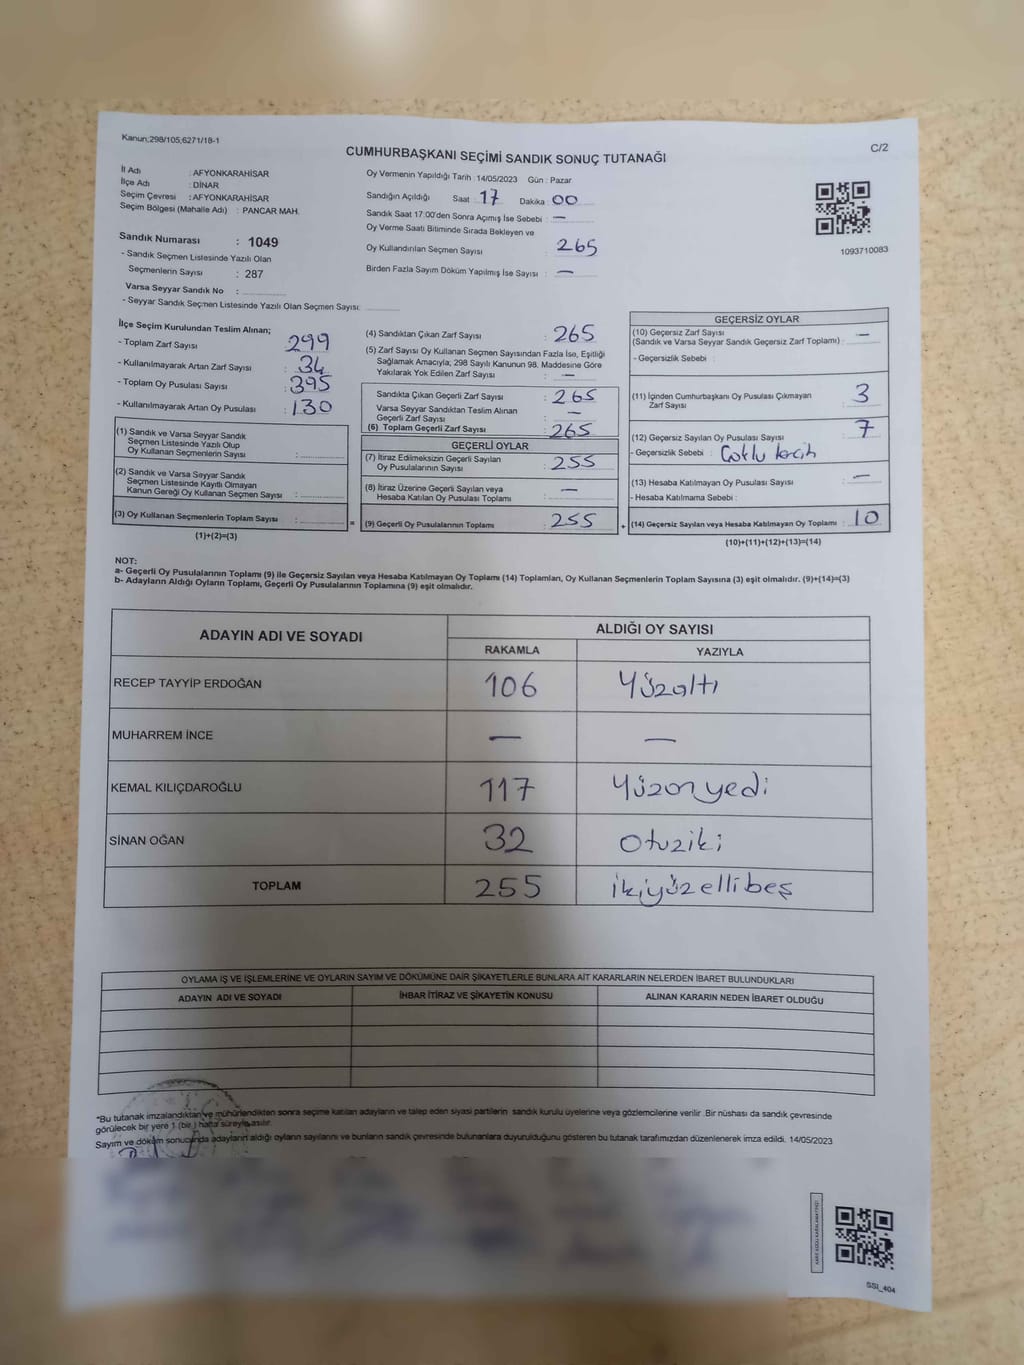 Kanun;298/105,6271/18-1
C/2
CUMHURBAŞKANI SEÇİMİ SANDIK SONUÇ TUTANAĞI
İl Adı : AFYONKARAHİSAR
İlçe Adı : DİNAR
Seçim Çevresi : AFYONKARAHİSAR
Seçim Bölgesi (Mahalle Adı) : PANCAR MAH.
Sandık Numarası : 1049
- Sandık Seçmen Listesinde Yazılı Olan
Seçmenlerin Sayısı : 287
Varsa Seyyar Sandık No :
- Seyyar Sandık Seçmen Listesinde Yazılı Olan Seçmen Sayısı:
Oy Vermenin Yapıldığı Tarih : 14/05/2023 Gün : Pazar
Sandığın Açıldığı Saat : 17 Dakika : 00
Sandık Saat 17:00'den Sonra Açımış İse Sebebi : —
Oy Verme Saati Bitiminde Sırada Bekleyen ve
Oy Kullandırılan Seçmen Sayısı : 265
Birden Fazla Sayım Döküm Yapılmış İse Sayısı : —
1093710083
İlçe Seçim Kurulundan Teslim Alınan;
- Toplam Zarf Sayısı : 299
- Kullanılmayarak Artan Zarf Sayısı : 34
- Toplam Oy Pusulası Sayısı : 395
- Kullanılmayarak Artan Oy Pusulası : 130
(1) Sandık ve Varsa Seyyar Sandık
Seçmen Listesinde Yazılı Olup
Oy Kullanan Seçmenlerin Sayısı :
(2) Sandık ve Varsa Seyyar Sandık
Seçmen Listesinde Kayıtlı Olmayan
Kanun Gereği Oy Kullanan Seçmen Sayısı :
(3) Oy Kullanan Seçmenlerin Toplam Sayısı :
(1)+(2)=(3)
(4) Sandıktan Çıkan Zarf Sayısı : 265
(5) Zarf Sayısı Oy Kullanan Seçmen Sayısından Fazla İse, Eşitliği
Sağlamak Amacıyla; 298 Sayılı Kanunun 98. Maddesine Göre
Yakılarak Yok Edilen Zarf Sayısı : —
Sandıkta Çıkan Geçerli Zarf Sayısı : 265
Varsa Seyyar Sandıktan Teslim Alınan
Geçerli Zarf Sayısı : —
(6) Toplam Geçerli Zarf Sayısı : 265
GEÇERLİ OYLAR
(7) İtiraz Edilmeksizin Geçerli Sayılan
Oy Pusulalarının Sayısı : 255
(8) İtiraz Üzerine Geçerli Sayılan veya
Hesaba Katılan Oy Pusulası Toplamı : —
= (9) Geçerli Oy Pusulalarının Toplamı : 255 +
GEÇERSİZ OYLAR
(10) Geçersiz Zarf Sayısı
(Sandık ve Varsa Seyyar Sandık Geçersiz Zarf Toplamı) : —
- Geçersizlik Sebebi :
(11) İçinden Cumhurbaşkanı Oy Pusulası Çıkmayan
Zarf Sayısı : 3
(12) Geçersiz Sayılan Oy Pusulası Sayısı : 7
- Geçersizlik Sebebi : Çoklu tercih
(13) Hesaba Katılmayan Oy Pusulası Sayısı : —
- Hesaba Katılmama Sebebi :
(14) Geçersiz Sayılan veya Hesaba Katılmayan Oy Toplamı : 10
(10)+(11)+(12)+(13)=(14)
NOT:
a- Geçerli Oy Pusulalarının Toplamı (9) ile Geçersiz Sayılan veya Hesaba Katılmayan Oy Toplamı (14) Toplamları, Oy Kullanan Seçmenlerin Toplam Sayısına (3) eşit olmalıdır. (9)+(14)=(3)
b- Adayların Aldığı Oyların Toplamı, Geçerli Oy Pusulalarının Toplamına (9) eşit olmalıdır.
ADAYIN ADI VE SOYADI ALDIĞI OY SAYISI
RAKAMLA YAZIYLA
RECEP TAYYİP ERDOĞAN 106 Yüzaltı
MUHARREM İNCE — —
KEMAL KILIÇDAROĞLU 117 Yüzonyedi
SİNAN OĞAN 32 Otuziki
TOPLAM 255 ikiyüzellibeş
OYLAMA İŞ VE İŞLEMLERİNE VE OYLARIN SAYIM VE DÖKÜMÜNE DAİR ŞİKAYETLERLE BUNLARA AİT KARARLARIN NELERDEN İBARET BULUNDUKLARI
ADAYIN ADI VE SOYADI İHBAR İTİRAZ VE ŞİKAYETİN KONUSU ALINAN KARARIN NEDEN İBARET OLDUĞU
*Bu tutanak imzalandıktan ve mühürlendikten sonra seçime katılan adayların ve talep eden siyasi partilerin sandık kurulu üyelerine veya gözlemcilerine verilir. Bir nüshası da sandık çevresinde
görülecek bir yere 1 (bir ) hafta süreyle asılır.
Sayım ve döküm sonucunda adayların aldığı oyların sayılarını ve bunların sandık çevresinde bulunanlara duyurulduğunu gösteren bu tutanak tarafımızdan düzenlenerek imza edildi. 14/05/2023
SSI_404